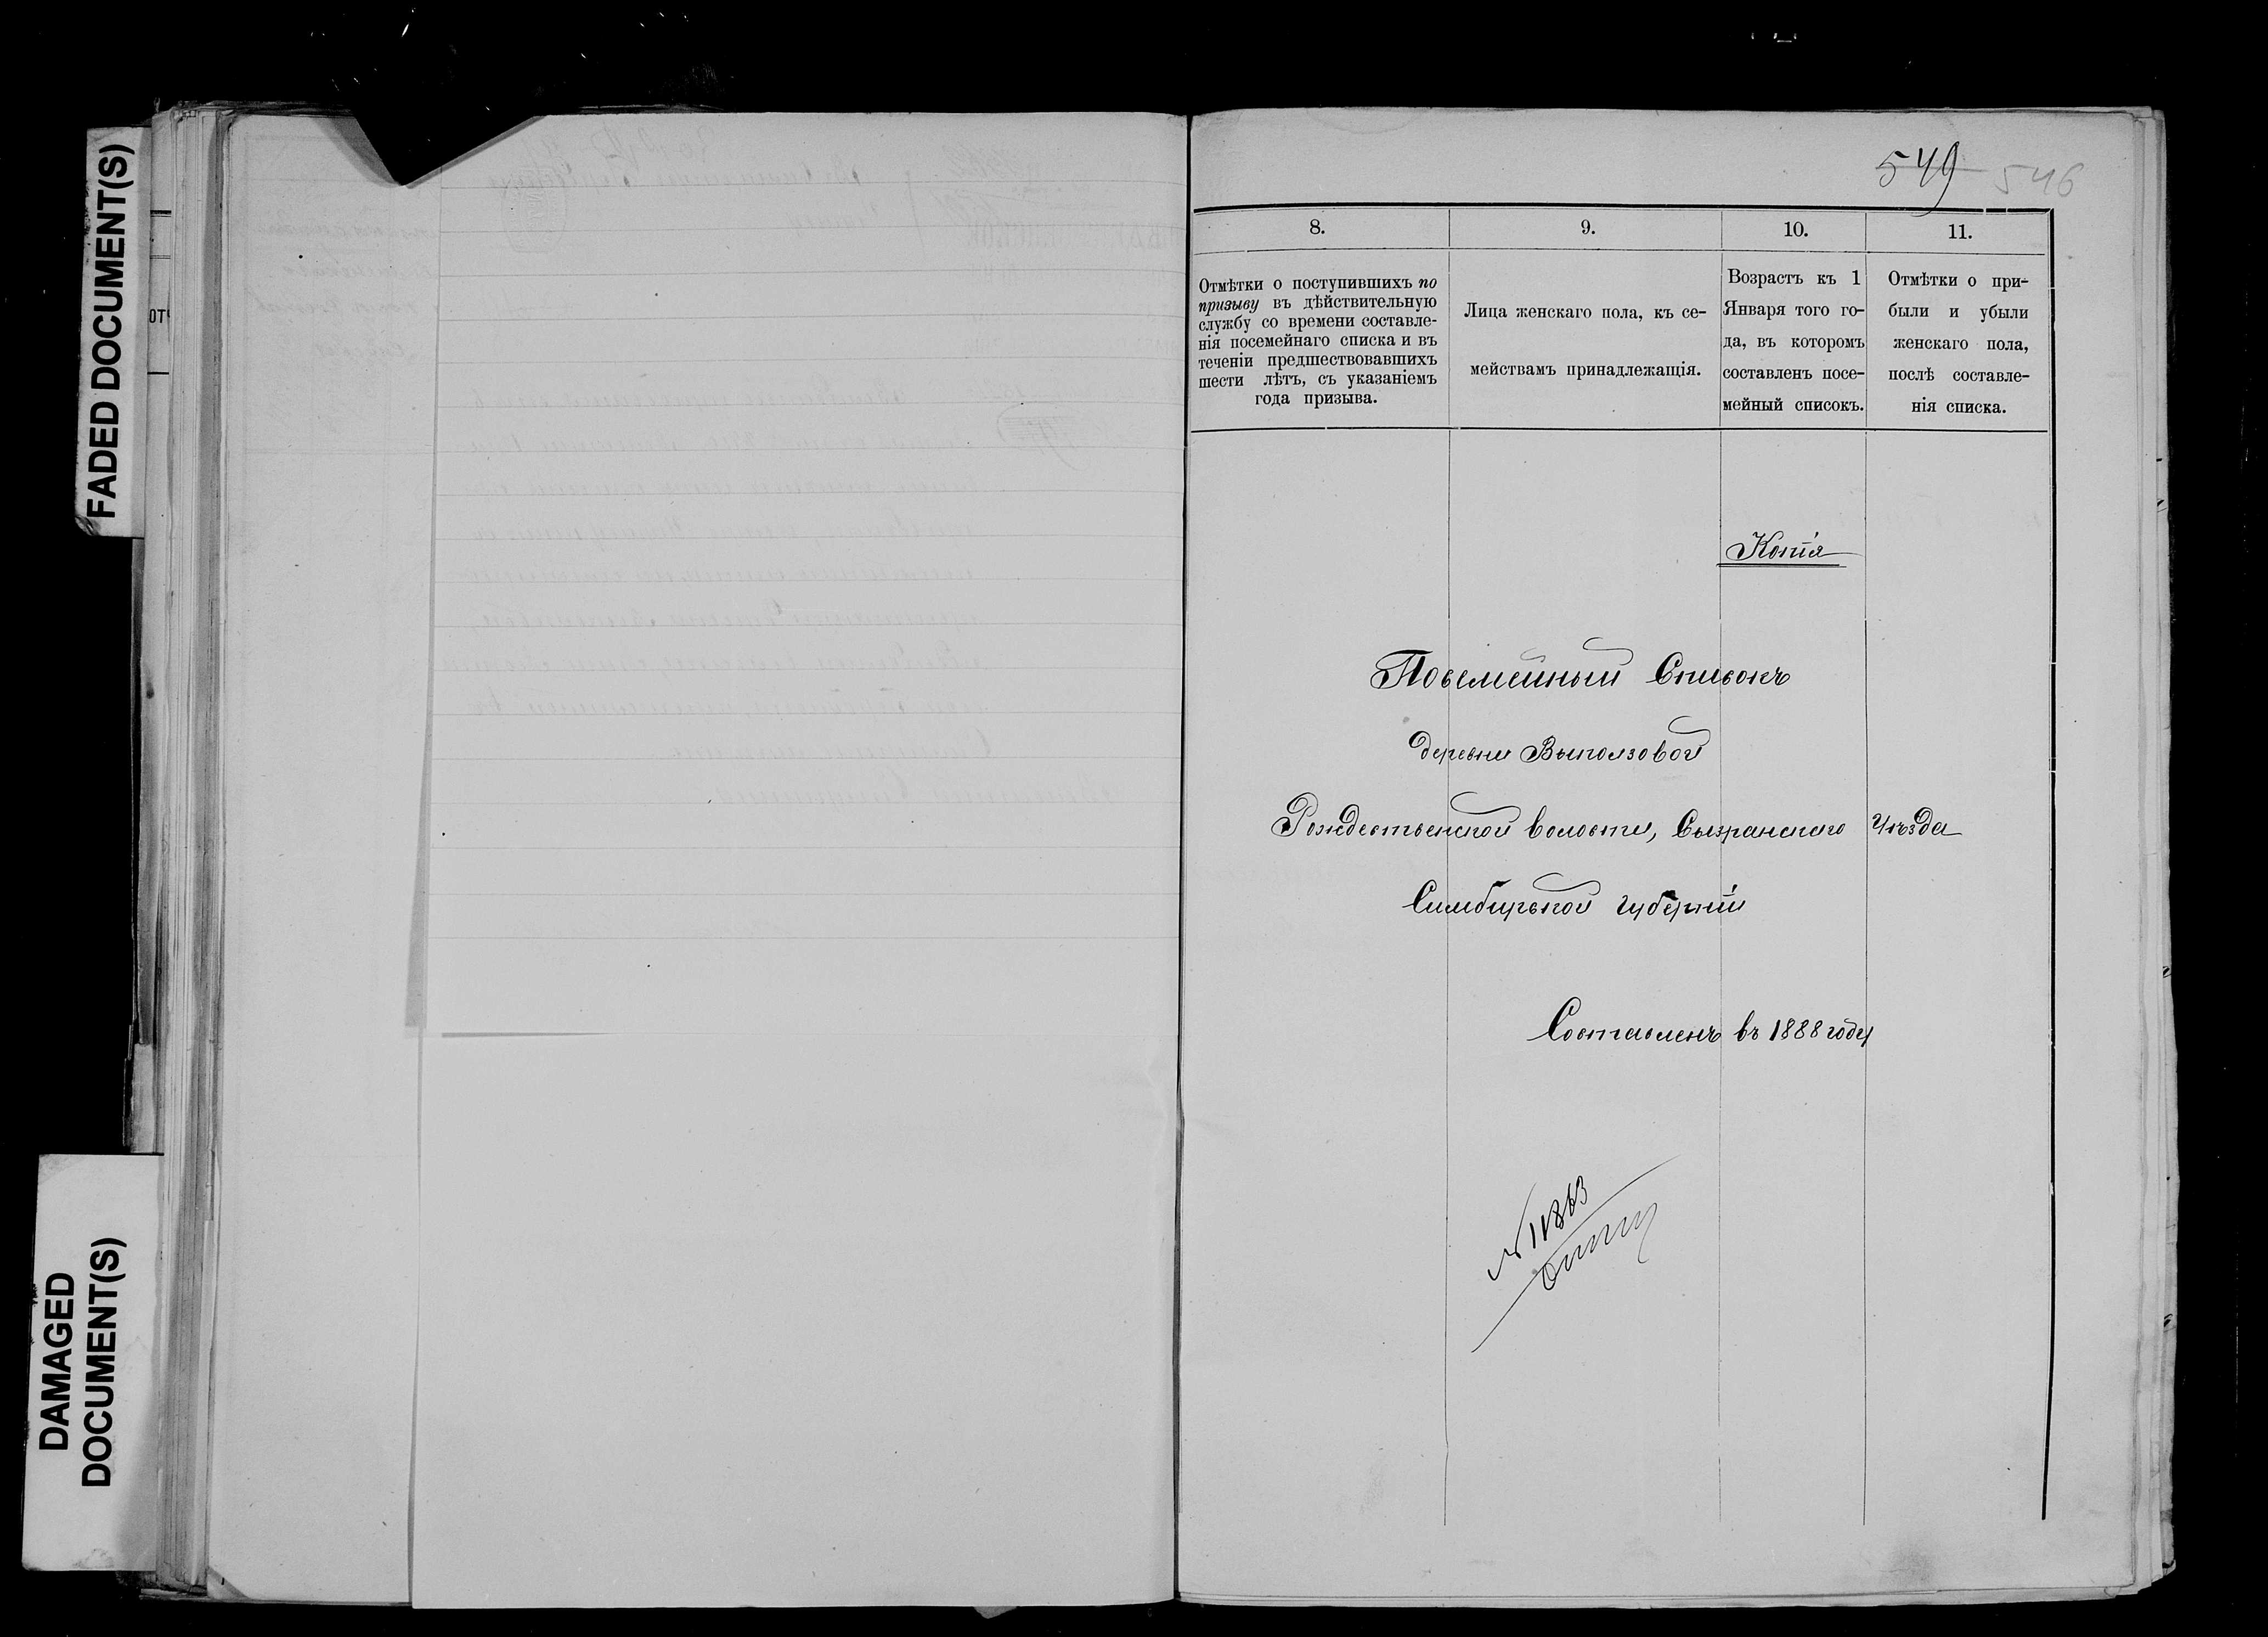 FADED DOCUMENT(S)
DAMAGED
DOCUMENT(S)
549 546
8. 9. 10. 11.
Отмѣтки о поступившихъ по
призыву въ дѣйствительную
службу со времени составле-
нія посемейнаго списка и въ
теченіи предшествовавшихъ
шести лѣтъ, съ указаніемъ
года призыва.
Лица женскаго пола, къ се-
мействамъ принадлежащія.
Возрастъ къ 1
Января того го-
да, въ которомъ
составленъ посе-
мейный списокъ.
Отмѣтки о при-
были и убыли
женскаго пола,
послѣ составле-
нія списка.
Копія
Посемейный Списокъ
деревни Выползовой
Рождественской волости, Сызранскаго Уѣзда
Симбирской губерніи
Составленъ въ 1888 году
№ 11863